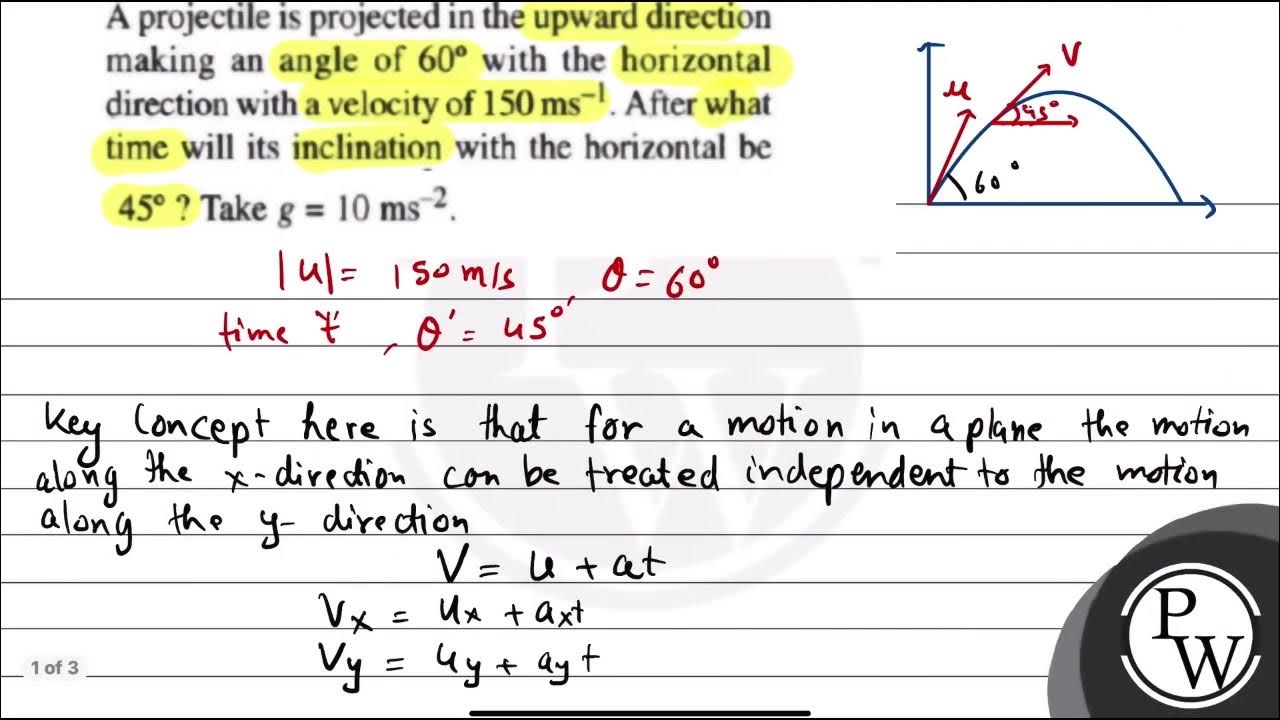 A projectile is projected in the upward direction
making an angle of 60° with the horizontal
direction with a velocity of 150 ms⁻¹. After what
time will its inclination with the horizontal be
45° ? Take g = 10 ms⁻².
u
V
45°
60°
|u| = 150 m/s, θ = 60°
time 't', θ' = 45°
Key Concept here is that for a motion in a plane the motion
along the x-direction can be treated independent to the motion
along the y-direction
V = u + at
Vx = ux + axt
Vy = uy + ayt
1 of 3
PW